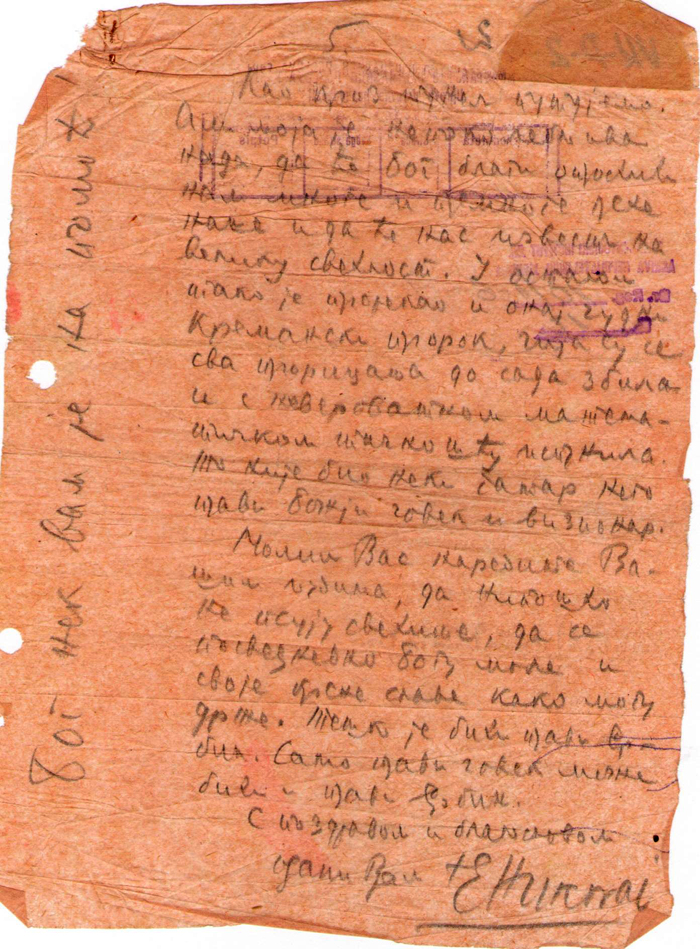 5.
Као кроз тунел путујемо.
Али моја је непоколебљива
нада, да ће Бог благи опростити
нам многе и премноге грехе
наше и да ће нас извести на
велику светлост. У осталом
тако је прорекао и онај чудни
Кремански пророк, чија су се
сва прорицања до сада збила
и с невероватном матема-
тичком тачношћу испунила.
То није био неки гатар него
прави божји човек и визионар.
Молим Вас наредите Ва-
шим људима, да нипошто
не псују светиње, да се
посведневно Богу моле и
своје крсне славе како могу
држе. Тешко је бити прави Ср-
бин. Само прави човек може
бити и прави Србин.
С поздравом и благословом
одани Вам † Е Николај
Бог нек вам је на помоћ!